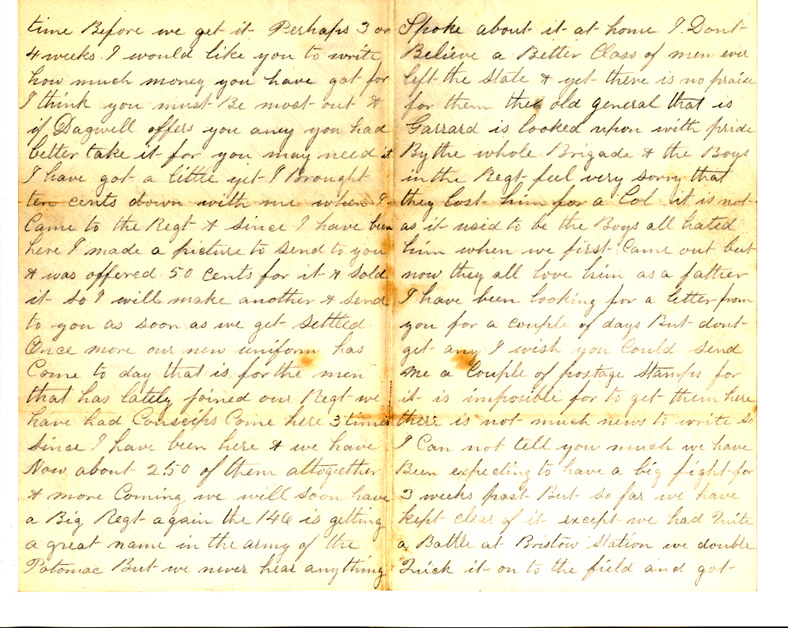 time Before we get it Perhaps 3 or
4 weeks. I would like you to write
how much money you have got for
I think you must Be most out &
if Dagwell offers you aney you had
better take it for you may need it
I have got a little yet I Brought
ten cents down with me when I
Came to the Regt & since I have been
here I made a picture to send to you
& was offered 50 cents for it & sold
it so I will make another & send
to you as soon as we get settled
Once more our new uniform has
Come to day that is for the men
that has lately joined our Regt we
have had Conscips Come here 3 times
since I have been here & we have
Now about 250 of them altogether
& more Coming we will soon have
a Big Regt again the 146 is getting
a great name in the army of the
Potomac But we never hear anything
Spoke about it at home I. Dont
Believe a Better Class of men ever
left the state & yet there is no praise
for them the old general that is
Garrard is looked upon with pride
By the whole Brigade & the Boys
in the Regt feel very sorry that
they lost him for a Col it is not
as it used to be the Boys all hated
him when we first Came out but
now they all love him as a father
I have been looking for a letter from
you for a couple of days But dont
get any I wish you Could send
me a Couple of postage stamps for
it is imposible for to get them here
there is not much news to write so
I Can not tell you much we have
Been expecting to have a big fight for
3 weeks past But so far we have
kept clear of it except we had Quite
a Battle at Bristow Station we double
Quick it on to the field and got